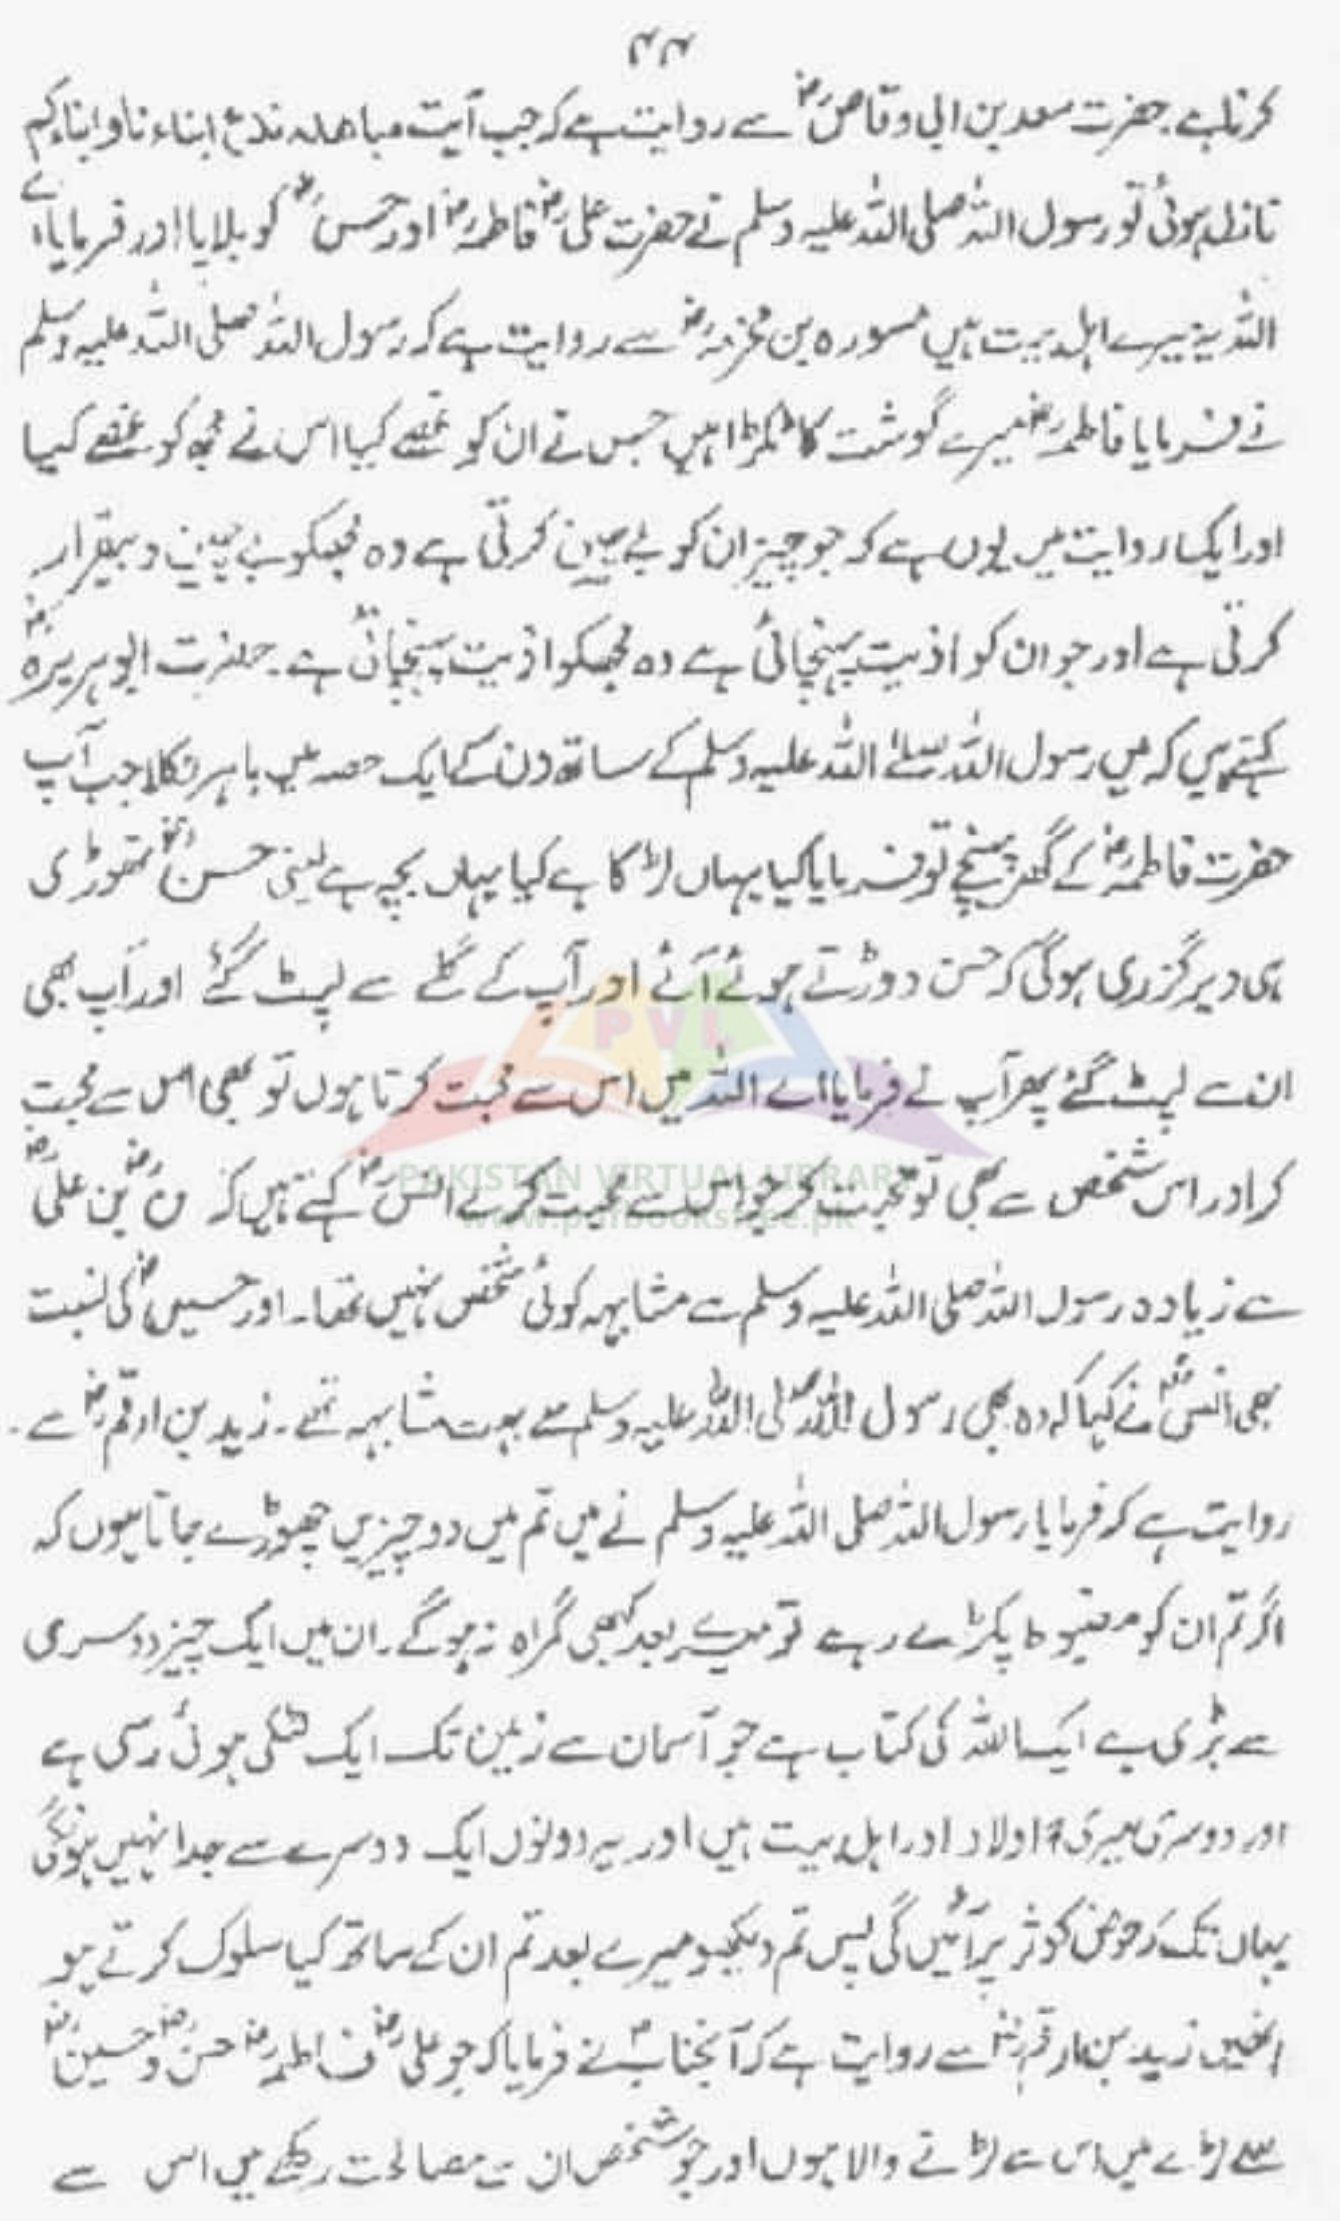 ۴۴
کرتا ہے۔ حضرت سعد بن ابی وقاصؓ سے روایت ہے کہ جب آیت مباھلہ ندع ابناءنا وابناءکم
نازل ہوئی تو رسول اللہ صلی اللہ علیہ وسلم نے حضرت علیؓ فاطمہؓ اور حسنؓ کو بلایا اور فرمایا اے
اللہ یہ میرے اہل بیت ہیں مسورہ بن مخرمہؓ سے روایت ہے کہ رسول اللہ صلی اللہ علیہ وسلم
نے فرمایا فاطمہؓ میرے گوشت کا ٹکڑا ہیں جس نے ان کو غصے کیا اس نے مجھ کو غصے کیا
اور ایک روایت میں یوں ہے کہ جو چیز ان کو بے چین کرتی ہے وہ مجھکو بے چین و بیقرار
کرتی ہے اور جو ان کو اذیت پہنچاتی ہے وہ مجھکو اذیت پہنچاتی ہے۔ حضرت ابو ہریرہؓ
کہتے ہیں کہ میں رسول اللہ صلے اللہ علیہ وسلم کے ساتھ دن کے ایک حصہ میں باہر نکلا جب آپ
حضرت فاطمہؓ کے گھر پہنچے تو فرمایا کیا یہاں لڑکا ہے کیا یہاں بچہ ہے یعنی حسنؓ تھوڑی
ہی دیر گزری ہوگی کہ حسن دوڑتے ہوئے آئے اور آپ کے گلے سے لپٹ گئے اور آپ بھی
ان سے لپٹ گئے پھر آپ نے فرمایا اے اللہ میں اس سے محبت کرتا ہوں تو بھی اس سے محبت
PVL
کر اور اس شخص سے بھی تو محبت کر جو اس سے محبت کرے انسؓ کہتے ہیں کہ نؓ بن علیؓ
PAKISTAN VIRTUAL LIBRARY
www.pdfbooksfree.pk
سے زیادہ رسول اللہ صلی اللہ علیہ وسلم سے مشابہہ کوئی شخص نہیں تھا۔ اور حسینؓ کی نسبت
بھی انسؓ نے کہا کہ وہ بھی رسول اللہ صلی اللہ علیہ وسلم سے بہت مشابہہ تھے۔ زید بن ارقمؓ سے
روایت ہے کہ فرمایا رسول اللہ صلی اللہ علیہ وسلم نے میں تم میں دو چیزیں چھوڑے جاتا ہوں کہ
اگر تم ان کو مضبوط پکڑے رہے تو میرے بعد کبھی گمراہ نہ ہوگے۔ ان میں ایک چیز دوسری
سے بڑی ہے ایک اللہ کی کتاب ہے جو آسمان سے زمین تک ایک لٹکی ہوئی رسی ہے
اور دوسری میری اولاد اور اہل بیت ہیں اور یہ دونوں ایک دوسرے سے جدا نہیں ہونگی
یہاں تک کہ حوض کوثر پر آئیں گی پس تم دیکھو میرے بعد تم ان کے ساتھ کیا سلوک کرتے ہو
انھیں زید بن ارقمؓ سے روایت ہے کہ آنجنابؐ نے فرمایا کہ جو علیؓ فاطمہؓ حسنؓ و حسینؓ
سے لڑے میں اس سے لڑنے والا ہوں اور جو شخص ان سے مصالحت رکھے میں اس سے